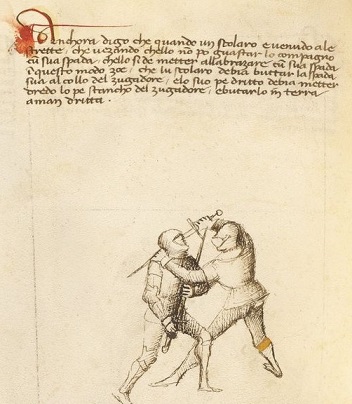 Anchora digo che quando un scolaro è venudo ale
strette, che vezando chello non po guastar lo compagno
cum sua spada, chello si de metter all abrazare cum sua spada
a questo modo zoe, che lu scolaro debia buttar la spada
sua al collo del zugadore, e lo suo pe dritto debia metter
dredo lo pe stancho del zugadore, e butarlo in terra
a man dritta.